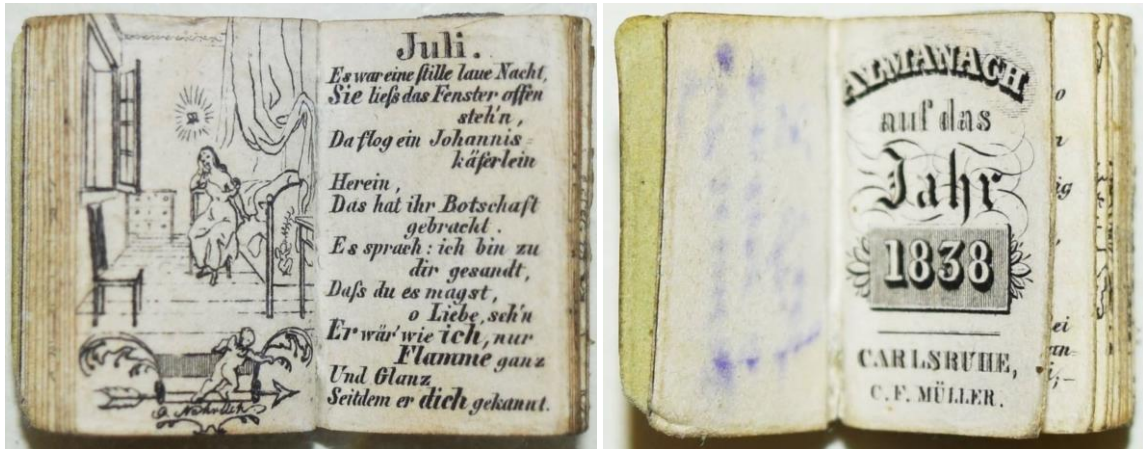 Juli.
Es war eine stille laue Nacht,
Sie ließ das Fenster offen
steh'n,
Da flog ein Johannis=
käferlein
Herein,
Das hat ihr Botschaft
gebracht.
Es sprach: ich bin zu
dir gesandt,
Daß du es magst,
o Liebe, seh'n
Er wär' wie ich, nur
Flamme ganz
Und Glanz
Seitdem er dich gekannt.
ALMANACH
auf das
Jahr
1838
CARLSRUHE,
C. F. MÜLLER.
ig
ei
an=